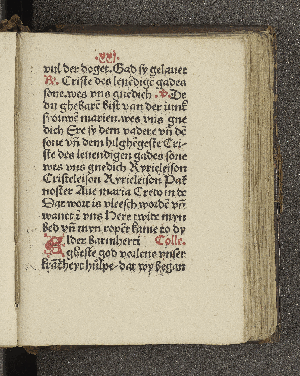 .xxj.
vul der doget. Gad sy gelauet
R. Criste des lēuēdigē gades
sone. wes vns gnedich. V. De
du ghebarē bist van der iunk
frouwē marien. wes vns gne
dich Ere sy dem vadere vn̄ dē
sone vn̄ dem hilghēgeste Cri-
ste des leuendigen gades sone
wes vns gnedich Kyrieleison
Cristeleison Kyrieleison Pat̄
noster Aue maria Credo in dē
Dat wort is vleesch wordē vn̄
wanet ī vns Here twide myn
bed vn̄ myn ropēt kame to dy
Alder barmherti Colle.
gheste god vorlene vnser
krācheyt hulpe dat wy began